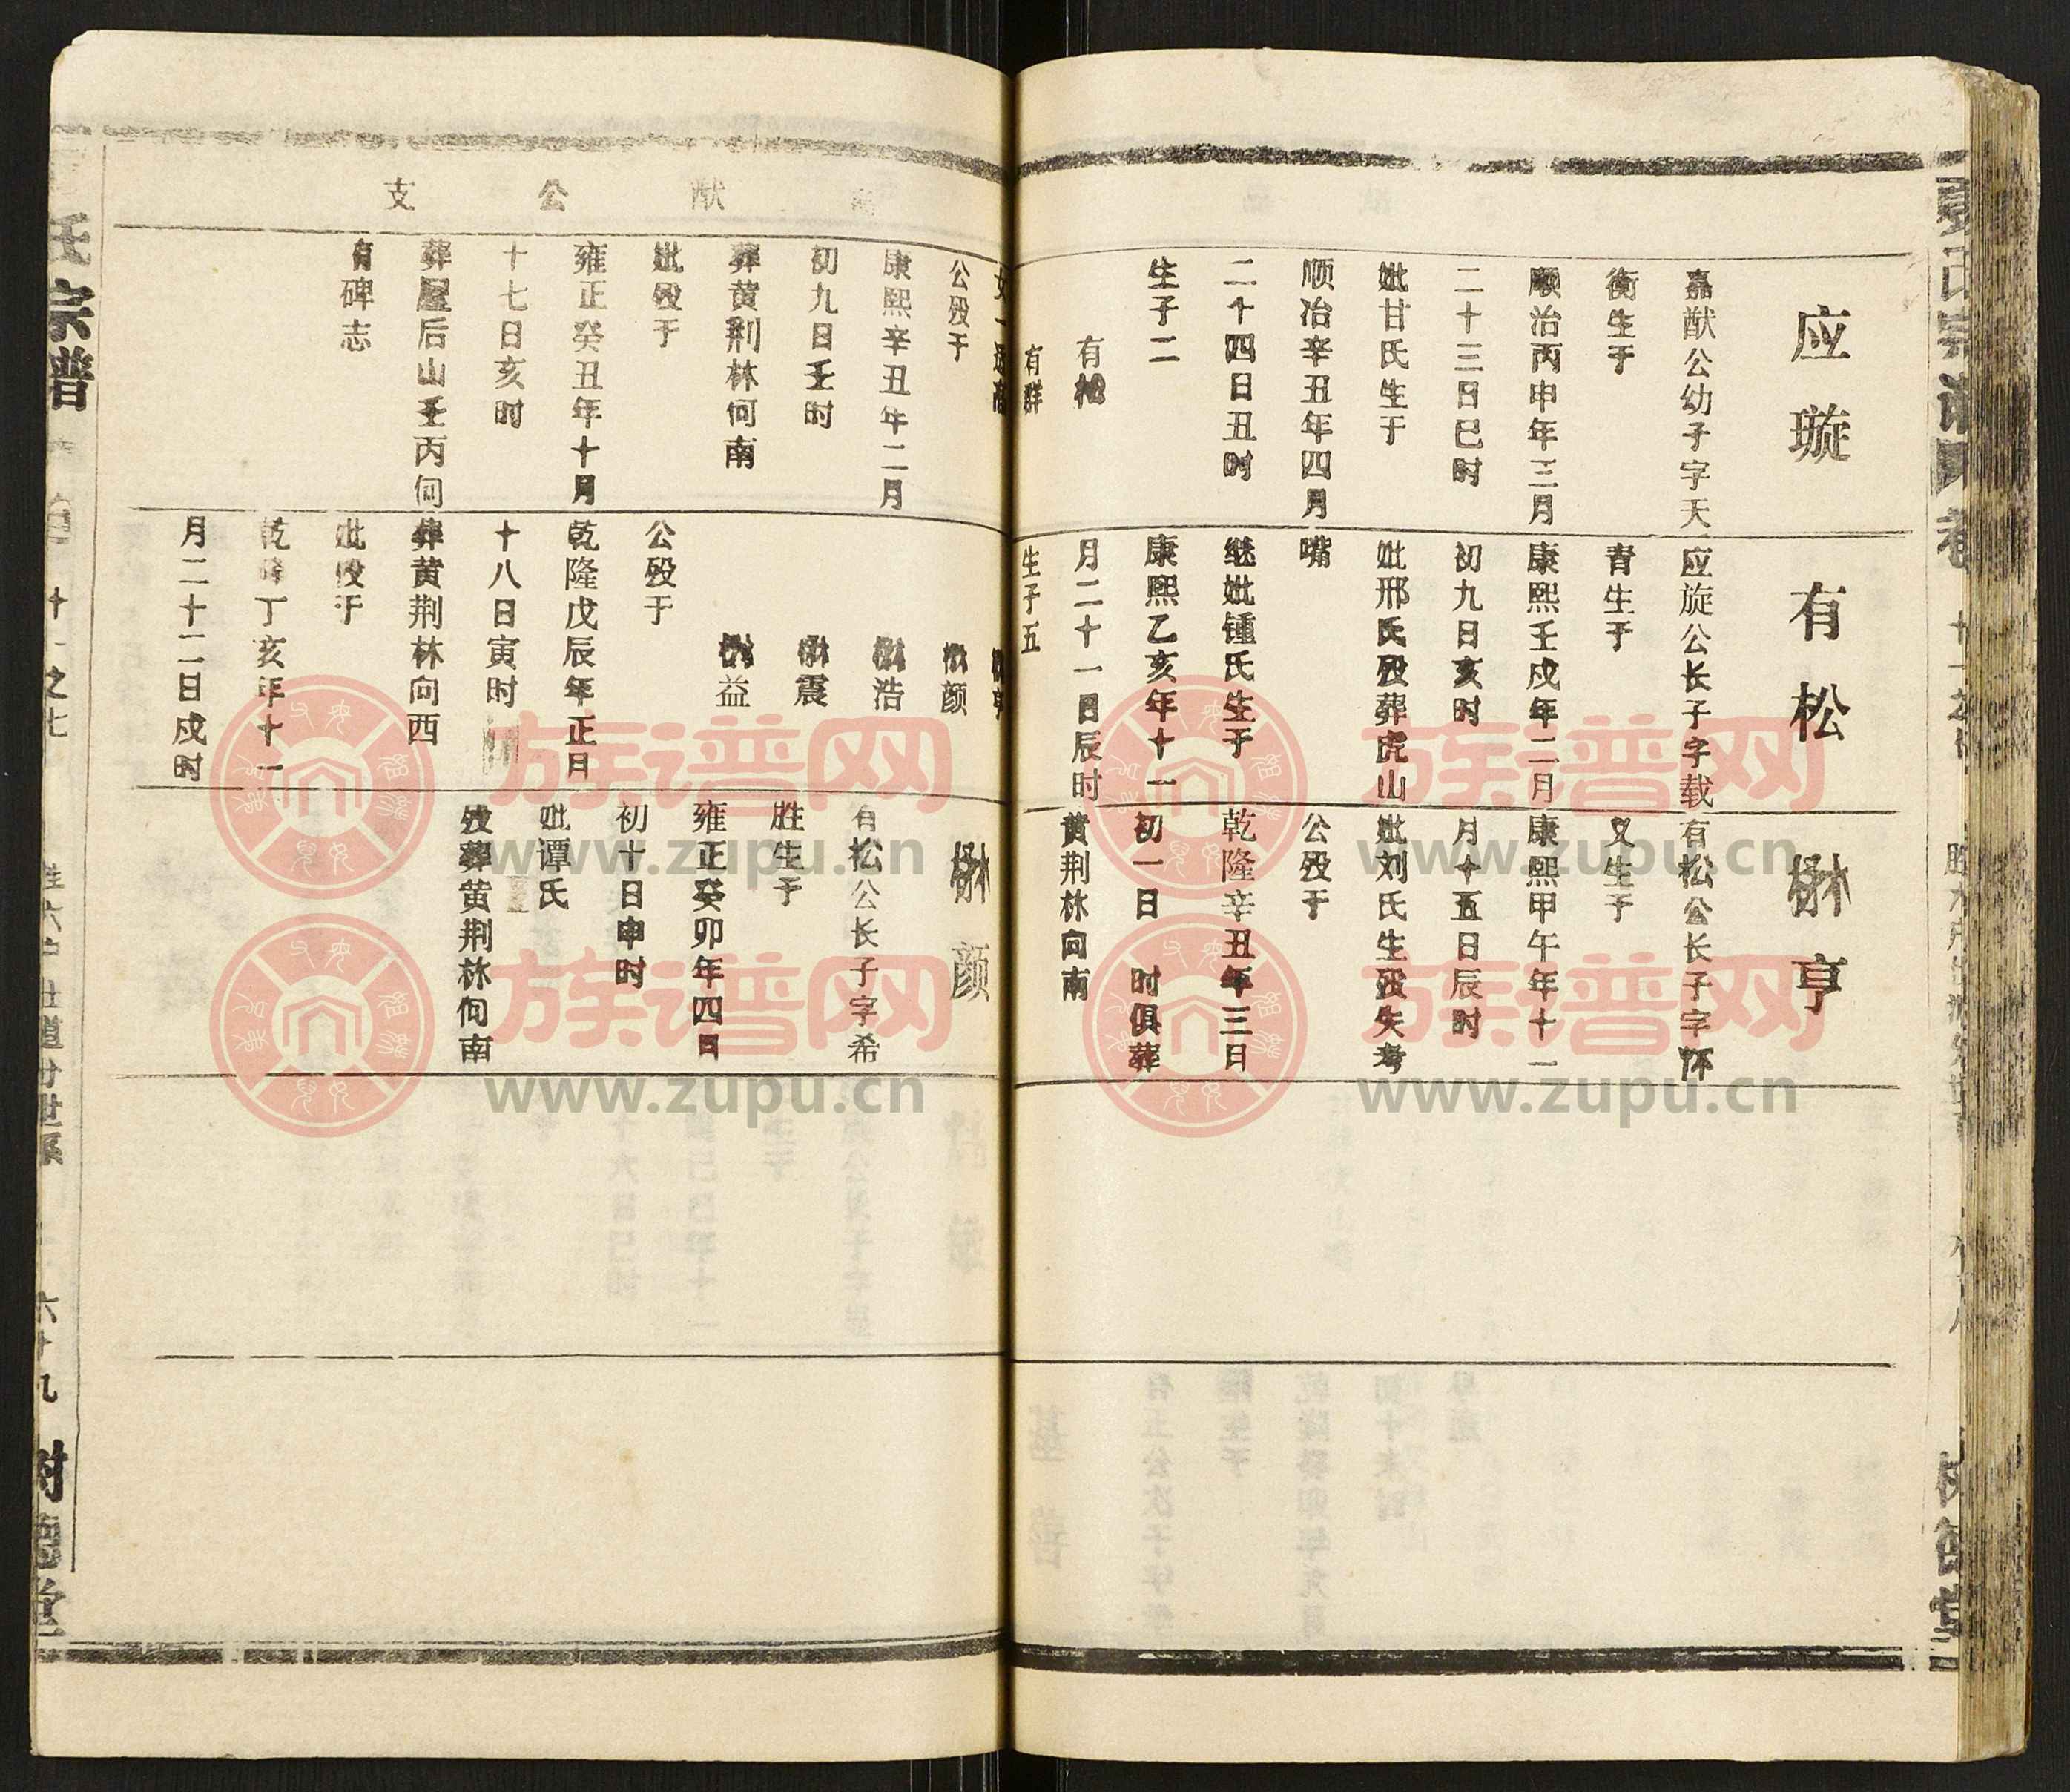 应璇
嘉猷公幼子字天
衡生于
顺治丙申年三月
二十三日巳时
妣甘氏生于
顺冶辛丑年四月
二十四日丑时
生子二
有松
有群
公殁于
康熙辛丑年二月
初九日壬时
葬黄荆林何南
妣殁于
雍正癸丑年十月
十七日亥时
葬屋后山壬丙何
有碑志
有松
应旋公长子字载
青生于
康熙壬戍年二月
初九日亥时
妣邢氏殁葬虎山
嘴
继妣锺氏生于
康熙乙亥年十一
月二十一日辰时
生子五
楙颜
楙浩
楙震
楙益
公殁于
乾隆戊辰年正日
十八日寅时
葬黄荆林向西
妣殁于
乾隆丁亥年十一
月二十二日戍时
楙亨
有松公长子字怀
义生于
康熙甲午年十一
月十五日辰时
妣刘氏生殁失考
公殁于
乾隆辛丑年三日
初一日 时俱葬
黄荆林向南
楙颜
有松公长子字希
胜生于
雍正癸卯年四日
初十日申时
妣谭氏
殁葬黄荆林何南
猷公支
氏宗谱
十一之七
六十九
树德堂
族谱网
www.zupu.cn
族谱网
www.zupu.cn
族谱网
www.zupu.cn
族谱网
www.zupu.cn